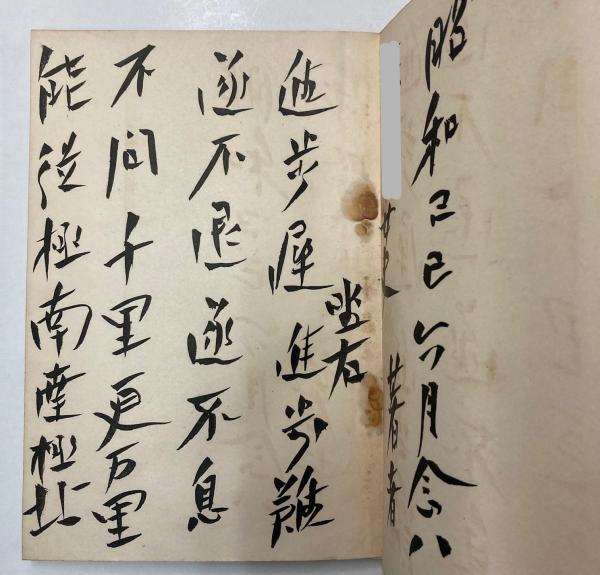 昭和己巳六月念八
著者
坐右
進歩遅進歩難
遂不退遂不息
不問千里更万里
能従極南達極北